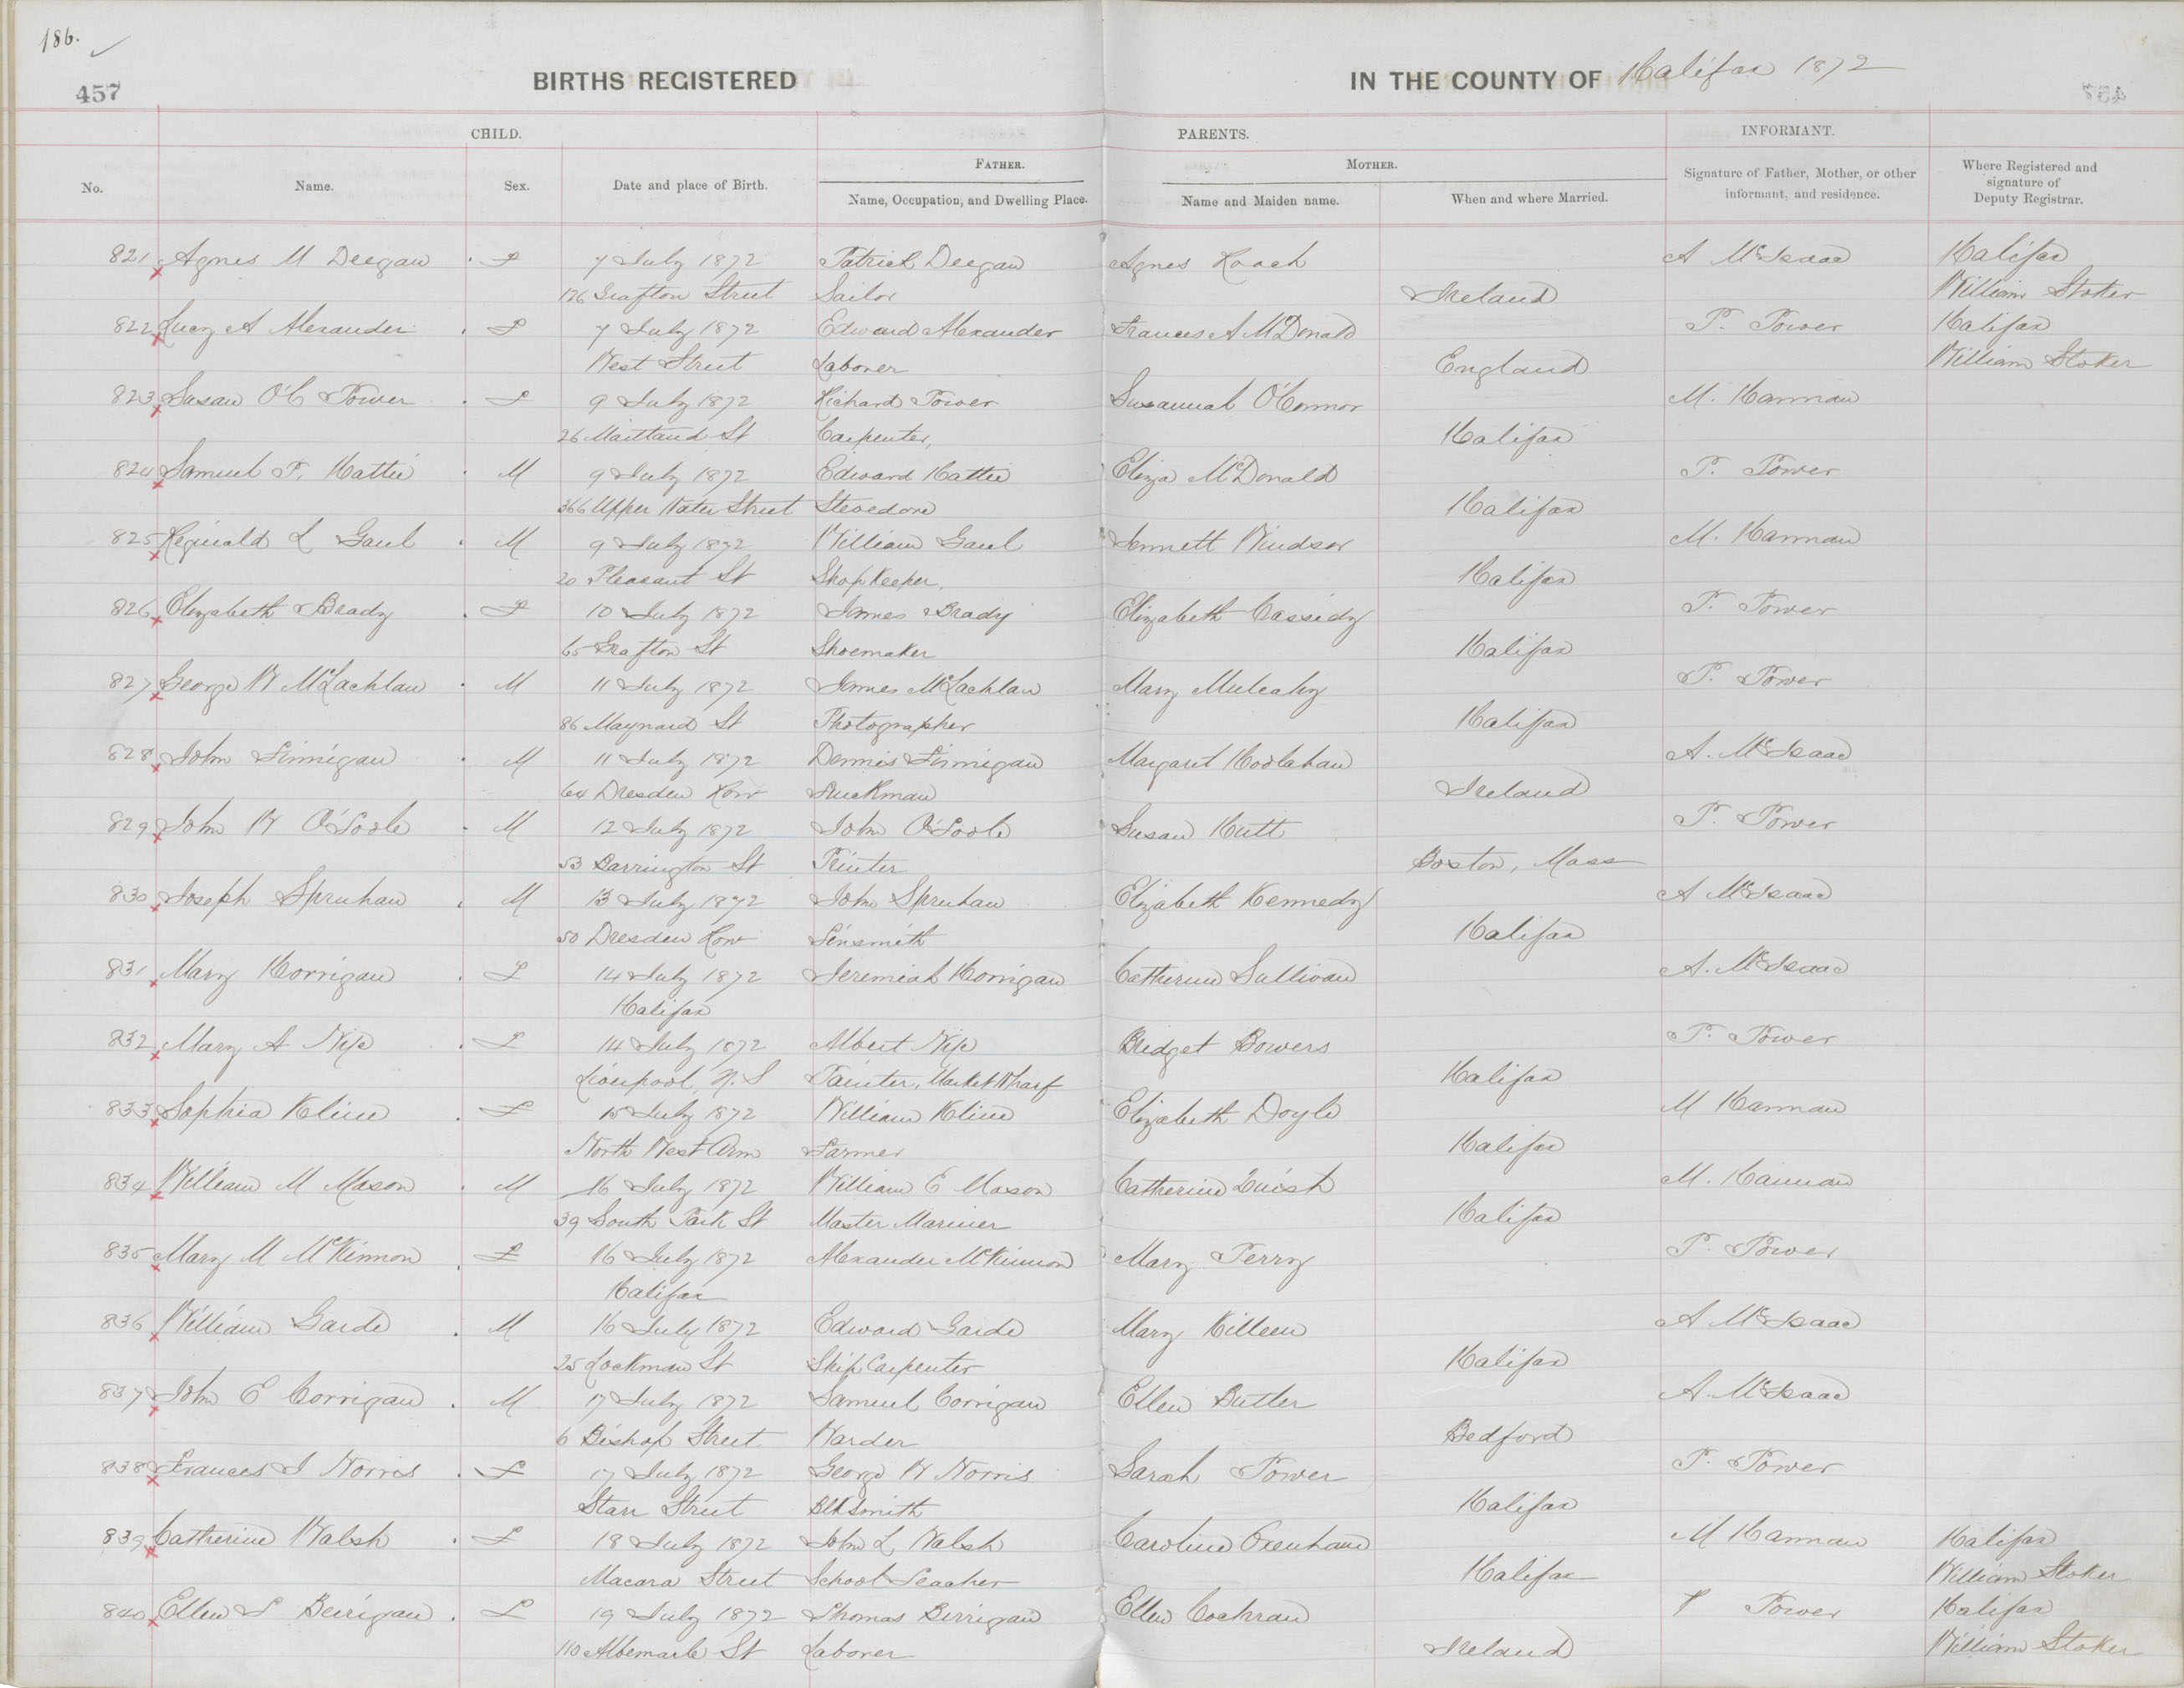 186.
457
BIRTHS REGISTERED IN THE COUNTY OF Halifax 1872
CHILD. PARENTS. INFORMANT.
FATHER. MOTHER.
No. Name. Sex. Date and place of Birth. Name, Occupation, and Dwelling Place. Name and Maiden name. When and where Married. Signature of Father, Mother, or other informant, and residence. Where Registered and signature of Deputy Registrar.
821 Agnes M Deegan F 7 July 1872 Patrick Deegan Agnes Roach A McIsaac Halifax
176 Grafton Street Sailor Ireland William Stoker
822 Lucy A Alexander F 7 July 1872 Edward Alexander Frances A McDonald P. Power Halifax
West Street Laborer England William Stoker
823 Susan O'C Power F 9 July 1872 Richard Power Susannah O'Connor M. Hannan
26 Maitland St Carpenter, Halifax
824 Samuel P. Hattie M 9 July 1872 Edward Hattie Eliza McDonald P. Power
366 Upper Water Street Stevedore Halifax
825 Reginald L Gaul M 9 July 1872 William Gaul Jennett Windsor M. Hannan
20 Pleasant St Shop Keeper, Halifax
826 Elizabeth Brady F 10 July 1872 James Brady Elizabeth Cassidy P. Power
65 Grafton St Shoemaker Halifax
827 George W McLachlan M 11 July 1872 James McLachlan Mary Mulcahy P. Power
86 Maynard St Photographer Halifax
828 John Finnigan M 11 July 1872 Dennis Finnigan Margaret Hoolahan A. McIsaac
64 Dresden Row Truckman Ireland
829 John W O'Toole M 12 July 1872 John O'Toole Susan Hutt P. Power
53 Barrington St Printer Boston, Mass
830 Joseph Spruhan M 13 July 1872 John Spruhan Elizabeth Kennedy A McIsaac
50 Dresden Row Tinsmith Halifax
831 Mary Horrigan F 14 July 1872 Jeremiah Horrigan Catherine Sullivan A. McIsaac
Halifax
832 Mary A Nip F 14 July 1872 Albert Nip Bridget Bowers P. Power
Liverpool, N.S Painter, Market Wharf Halifax
833 Sophia Kline F 15 July 1872 William Kline Elizabeth Doyle M Hannan
North West Arm Farmer Halifax
834 William M Mason M 16 July 1872 William E Mason Catherine M. Hannan
39 South Park St Master Mariner Halifax
835 Mary M McKinnon F 16 July 1872 Alexander McKinnon Mary Perry P. Power
Halifax
836 William Garde M 16 July 1872 Edward Garde Mary Killeen A McIsaac
25 Lockman St Ship Carpenter Halifax
837 John E Corrigan M 17 July 1872 Samuel Corrigan Ellen Butler A. McIsaac
6 Bishop Street Warder Bedford
838 Frances J Norris F 17 July 1872 George W Norris Sarah Power P. Power
Starr Street Blksmith Halifax
839 Catherine Walsh F 18 July 1872 John L Walsh Caroline Oxenham M Hannan Halifax
Macara Street School Teacher Halifax William Stoker
840 Ellen T Berrigan F 19 July 1872 Thomas Berrigan Ellen Cochran P Power Halifax
110 Albemarle St Laborer Ireland William Stoker